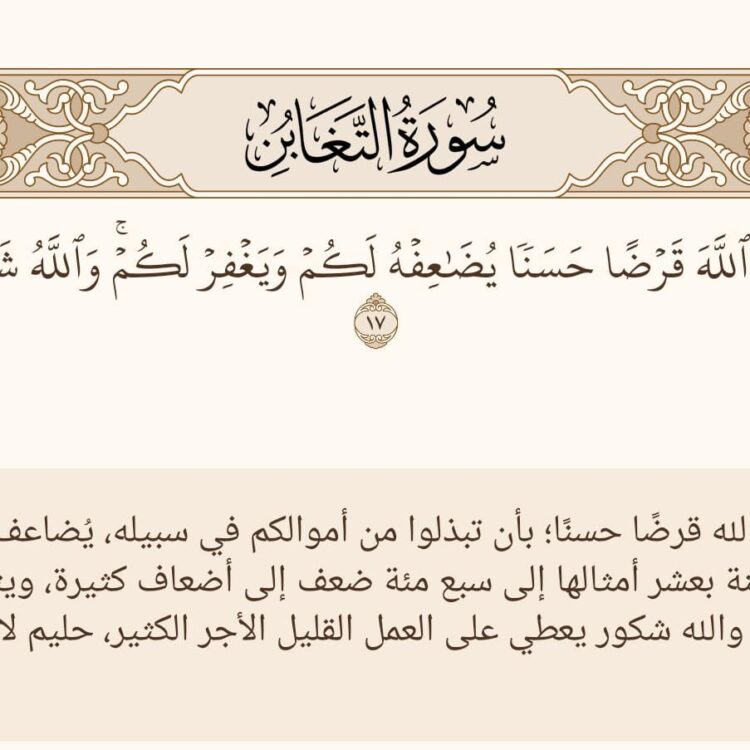 سُورَةُ التَّغَابُنِ
ٱللَّهَ قَرْضًا حَسَنٗا يُضَٰعِفْهُ لَكُمْ وَيَغْفِرْ لَكُمْۚ وَٱللَّهُ
١٧
لله قرضًا حسنًا؛ بأن تبذلوا من أموالكم في سبيله، يُضاعف
بعشر أمثالها إلى سبع مئة ضعف إلى أضعاف كثيرة،
والله شكور يعطي على العمل القليل الأجر الكثير، حليم لا